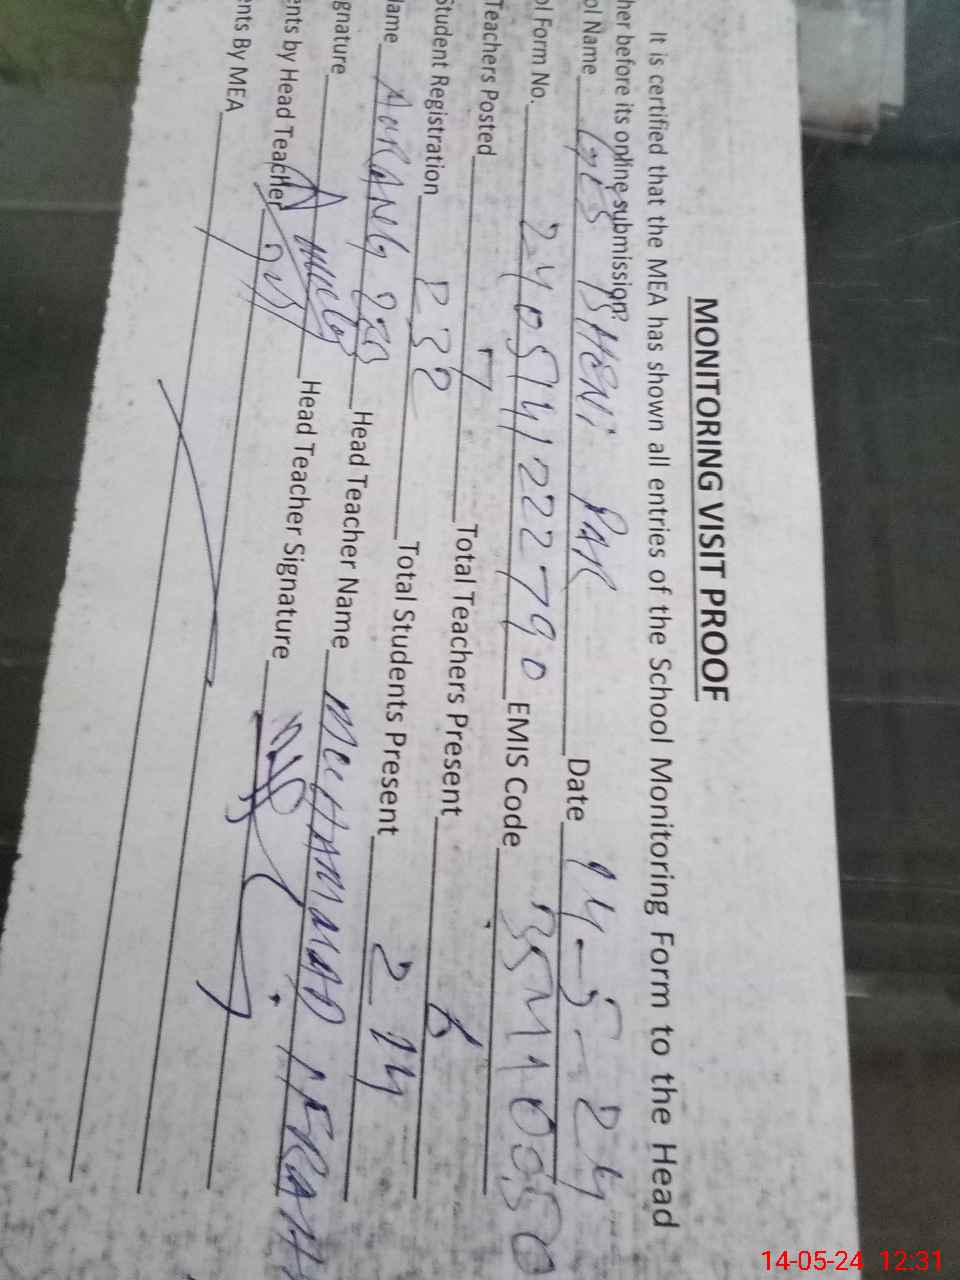 MONITORING VISIT PROOF
It is certified that the MEA has shown all entries of the School Monitoring Form to the Head
her before its online submission?
ol Name GES BHENI PAR Date 14-5-24
ol Form No. 2405141222790 EMIS Code
Teachers Posted 7 Total Teachers Present 6
Student Registration 232 Total Students Present 214
Name AURANG Head Teacher Name MUHAMMAD
gnature Head Teacher Signature
ents by Head Teacher
ents By MEA
14-05-24 12:31